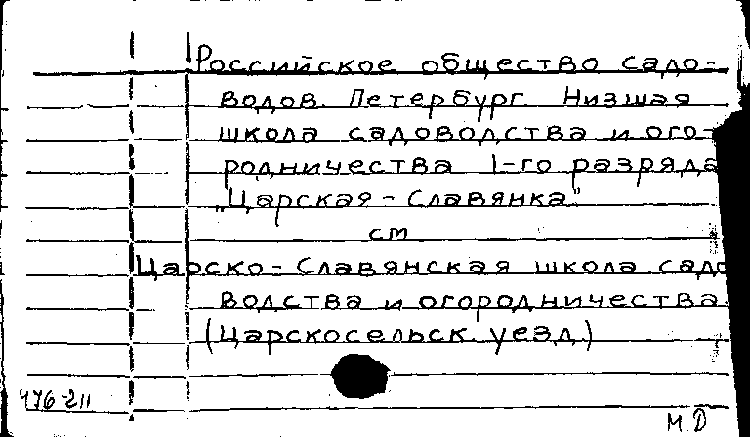 Российское общество садо-
водов. Петербург. Низшая
школа садоводства и ого-
родничества 1-го разряда
"Царская-Славянка"
см
Царско-Славянская школа садо
водства и огородничества.
(Царскосельск. уезд.)
476-211
М.Д